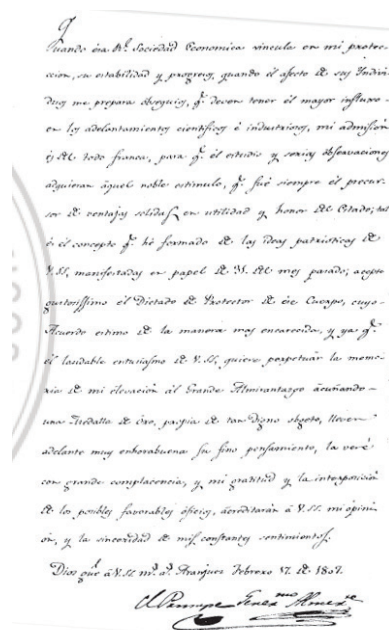 Quando esa Rl. Sociedad Economica vincula en mi protec-
cion, su estabilidad y progresos, quando el afecto de sus Indivi-
duos me prepara obsequios, q.e deven tener el mayor influxo
en los adelantamientos cientificos é industriosos, mi admision
és del todo franca, para q.e el estudio y serias observaciones
adquieran aquel noble estimulo, q.e fué siempre el precur-
sor de ventajas solidas en utilidad y honor del Estado; tal
és el concepto q.e hé formado de las ideas patrioticas de
V.SS. manifestadas en papel de 31. del mes pasado; acepto
gustosissimo él Dictado de Protector de ese Cuerpo, cuyo
Acuerdo estimo de la manera mas encarecida, y ya q.e
él laudable entusiasmo de V.SS. quiere perpetuar la memo-
ria de mi elevacion ál Grande Almirantazgo acuñando
una Medalla de Oro, propia de tan digno obgeto, lleven
adelante muy enhorabuena su fino pensamiento, la veré
con grande complacencia, y mi gratitud y la interposicion
de los posibles favorables oficios, acreditarán á V.SS. mi opini-
on, y la sinceridad de mis constantes sentimientos.
Dios gue. á V.SS. ms. as. Aranjuez Febrero 17. de 1807.
El Principe Genermo Almirte